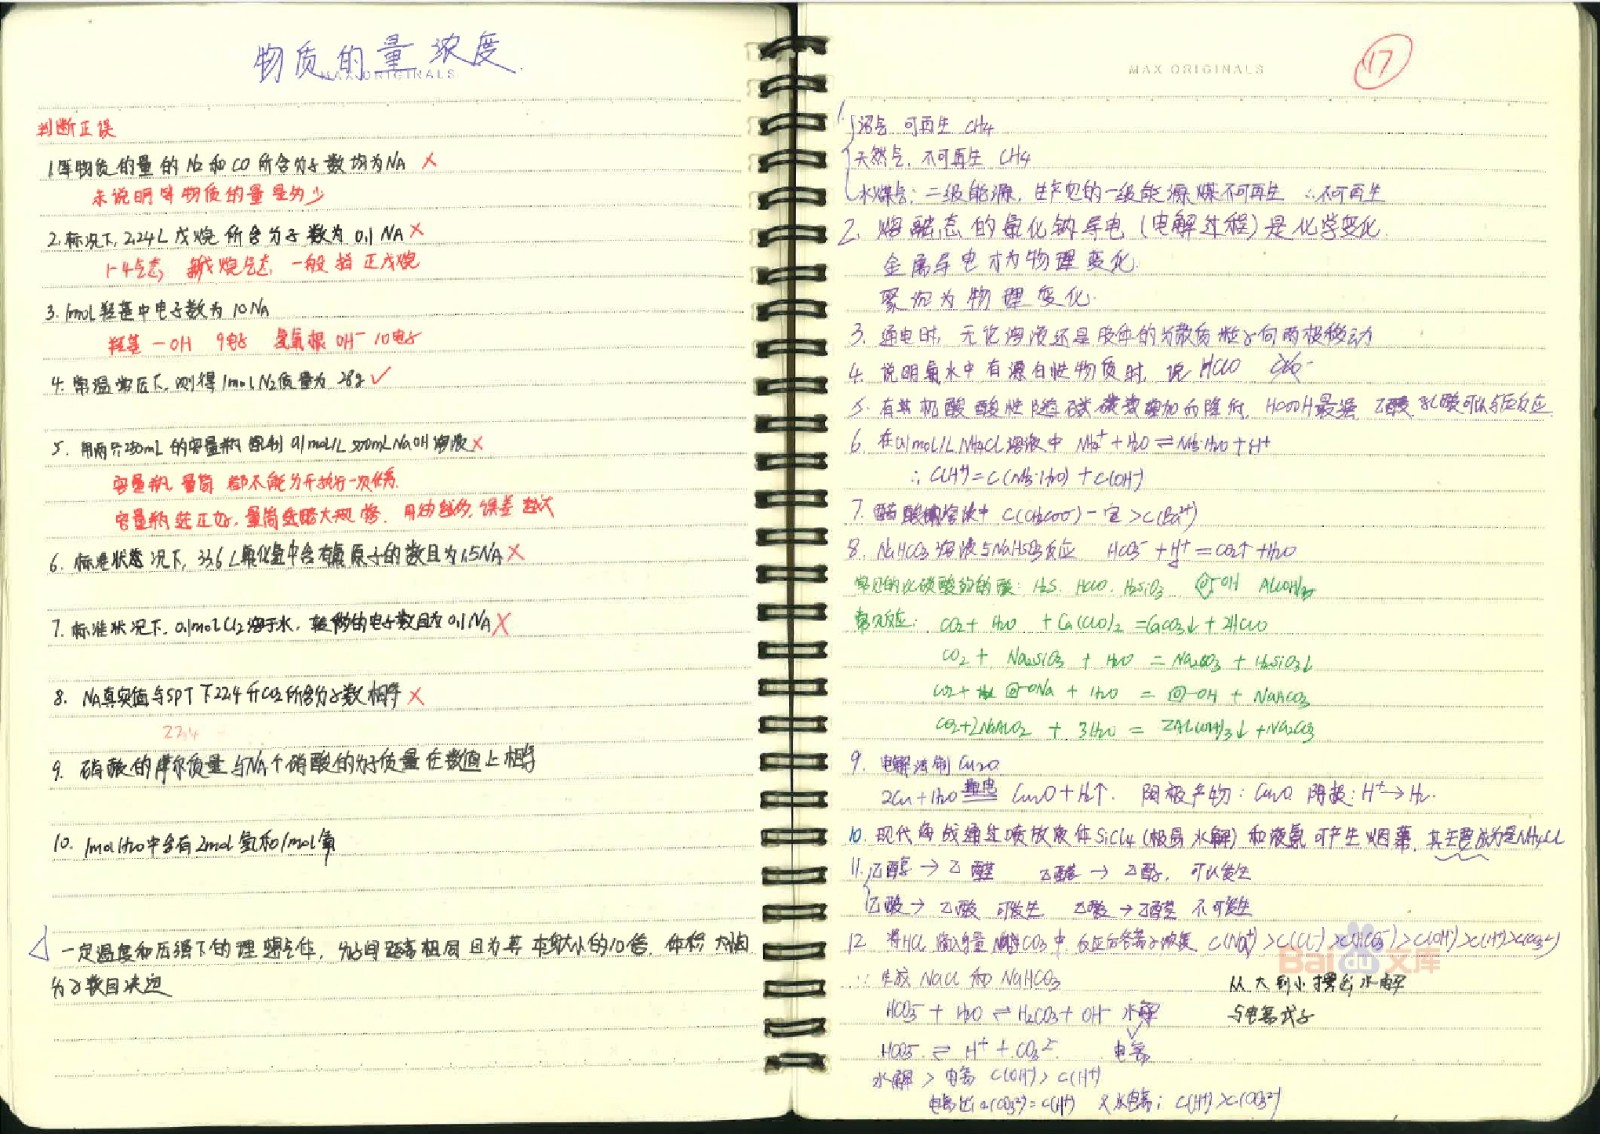 物质的量浓度
MAX ORIGINALS
判断正误
1.等物质的量的N2和CO所含分子数均为NA ×
未说明等物质的量是多少
2.标况下,2.24L戊烷所含分子数为0.1NA ×
1-4气态, 新戊烷气态, 一般指正戊烷
3.1mol羟基中电子数为10NA
羟基 -OH 9电子 氢氧根 OH⁻ 10电子
4.常温常压下,测得1molN2质量为28g ✓
5.用两个250mL的容量瓶配制0.1mol/L 500mL NaOH溶液 ×
容量瓶 量筒 都不能分开执行一次任务.
容量瓶选正好,量筒选略大规格.
6.标准状态况下,33.6L氟化氢中含有氟原子的数目为1.5NA ×
7.标准状况下,0.1molCl2溶于水,转移的电子数目为0.1NA ×
8.NA真实值与SPT下224升CO2所含分子数相等 ×
22.4
9.硝酸的摩尔质量与NA个硝酸的分子质量在数值上相等
10.1molH2O中含有2mol氢和1mol氧
△一定温度和压强下的理想气体,分子间距离相同且为其本身大小的10倍,体积大小由
分子数目决定
MAX ORIGINALS
17
1.沼气 可再生 CH4
天然气,不可再生 CH4
水煤气:二级能源,生产它的一级能源煤不可再生 ∴不可再生
2.熔融态的氧化钠导电(电解过程)是化学变化
金属导电才为物理变化.
聚沉为物理变化.
3.通电时,无论溶液还是胶体的分散质粒子向两极移动
4.说明氯水中有漂白性物质时,说HClO
5.有机酸酸性随碳数增加而降低,HCOOH最强,乙酸
6.在0.1mol/L NH4Cl溶液中 NH4⁺+H2O⇌NH3·H2O+H⁺
∴C(H⁺)=C(NH3·H2O)+C(OH⁻)
7.醋酸钡溶液中 C(CH3COO⁻)一定>C(Ba²⁺)
8.NaHCO3溶液与NaHSO4反应 HCO3⁻+H⁺=CO2↑+H2O
常见的比碳酸弱的酸:H2S. HClO. H2SiO3. -OH Al(OH)3
常见反应: CO2+H2O+Ca(ClO)2=CaCO3↓+2HClO
CO2+Na2SiO3+H2O=Na2CO3+H2SiO3↓
CO2+ -ONa+H2O= -OH+NaHCO3
CO2+2NaAlO2+3H2O=2Al(OH)3↓+Na2CO3
9.电解法制Cu2O
2Cu+H2O 通电 Cu2O+H2↑. 阳极产物:Cu2O 阴极:H⁺→H2.
10.现代海战通过喷放液体SiCl4(极易水解)和液氨可产生烟幕,其主要成分是NH4Cl
11.乙醇→乙醛 乙醛→乙醇, 可以发生
乙醛→乙酸 可发生 乙酸→乙醛 不可发生
12.将HCl滴入等量Na2CO3中,反应后各离子浓度 C(Na⁺)>C(Cl⁻)>C(HCO3⁻)>C(OH⁻)>C(H⁺)>C(CO3²⁻)
∵生成NaCl和NaHCO3
从大到小摆出水解
HCO3⁻+H2O⇌H2CO3+OH⁻ 水解
与电离式子
HCO3⁻⇌H⁺+CO3²⁻ 电离
水解>电离 C(OH⁻)>C(H⁺)
电离出C(CO3²⁻)=C(H⁺) 又水电离; C(H⁺)>C(CO3²⁻)
Baidu文库